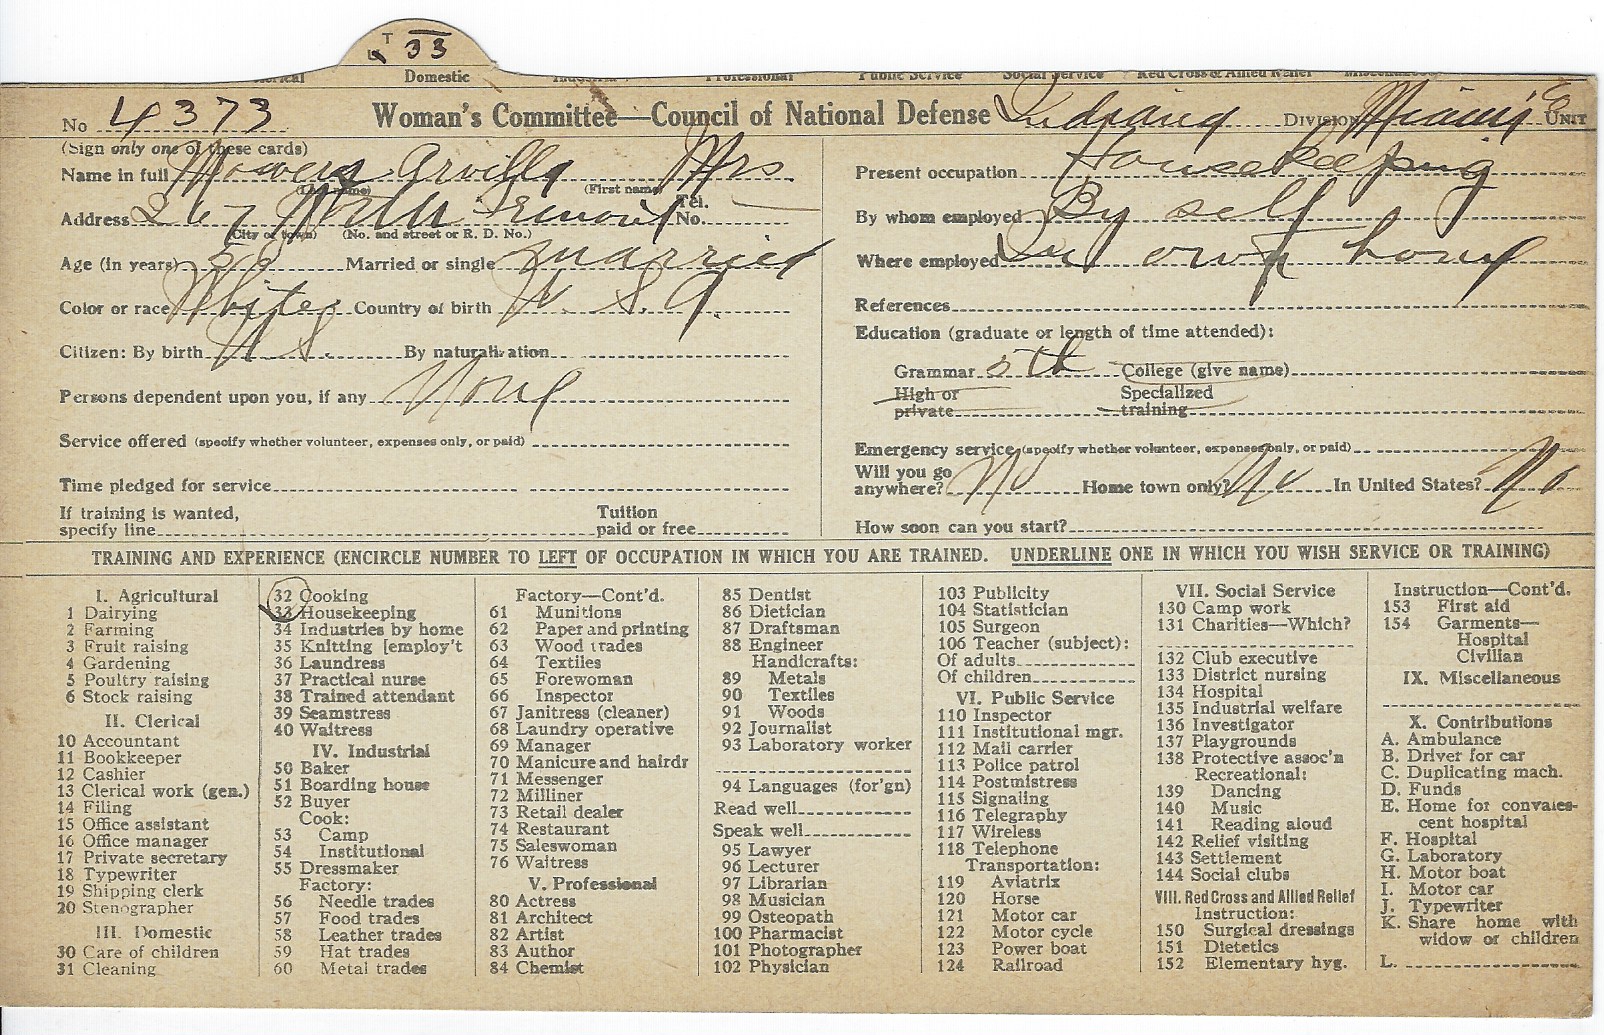 T 33
Domestic
Professional Public Service Social Service Red Cross & Allied Relief Miscellaneous
No 4373 Woman's Committee—Council of National Defense Indiana Division Miami Unit
(Sign only one of these cards)
Name in full Mowery Arvilla Mrs.
(Last name) (First name)
Address 267 West Tel. No.
(City or town) (No. and street or R. D. No.)
Age (in years) 58 Married or single married
Color or race White Country of birth U. S. A.
Citizen: By birth U S. By naturalization
Persons dependent upon you, if any None
Service offered (specify whether volunteer, expenses only, or paid)
Time pledged for service
If training is wanted, specify line Tuition paid or free
Present occupation Housekeeping
By whom employed By self
Where employed In own home
References
Education (graduate or length of time attended):
Grammar 5th College (give name)
High or private Specialized training
Emergency service (specify whether volunteer, expenses only, or paid)
Will you go anywhere? No Home town only? No In United States? No
How soon can you start?
TRAINING AND EXPERIENCE (ENCIRCLE NUMBER TO LEFT OF OCCUPATION IN WHICH YOU ARE TRAINED. UNDERLINE ONE IN WHICH YOU WISH SERVICE OR TRAINING)
I. Agricultural
1 Dairying
2 Farming
3 Fruit raising
4 Gardening
5 Poultry raising
6 Stock raising
II. Clerical
10 Accountant
11 Bookkeeper
12 Cashier
13 Clerical work (gen.)
14 Filing
15 Office assistant
16 Office manager
17 Private secretary
18 Typewriter
19 Shipping clerk
20 Stenographer
III. Domestic
30 Care of children
31 Cleaning
32 Cooking
33 Housekeeping
34 Industries by home
35 Knitting [employ't
36 Laundress
37 Practical nurse
38 Trained attendant
39 Seamstress
40 Waitress
IV. Industrial
50 Baker
51 Boarding house
52 Buyer
Cook:
53 Camp
54 Institutional
55 Dressmaker
Factory:
56 Needle trades
57 Food trades
58 Leather trades
59 Hat trades
60 Metal trades
Factory—Cont'd.
61 Munitions
62 Paper and printing
63 Wood trades
64 Textiles
65 Forewoman
66 Inspector
67 Janitress (cleaner)
68 Laundry operative
69 Manager
70 Manicure and hairdr
71 Messenger
72 Milliner
73 Retail dealer
74 Restaurant
75 Saleswoman
76 Waitress
V. Professional
80 Actress
81 Architect
82 Artist
83 Author
84 Chemist
85 Dentist
86 Dietician
87 Draftsman
88 Engineer
Handicrafts:
89 Metals
90 Textiles
91 Woods
92 Journalist
93 Laboratory worker
94 Languages (for'gn)
Read well
Speak well
95 Lawyer
96 Lecturer
97 Librarian
98 Musician
99 Osteopath
100 Pharmacist
101 Photographer
102 Physician
103 Publicity
104 Statistician
105 Surgeon
106 Teacher (subject):
Of adults
Of children
VI. Public Service
110 Inspector
111 Institutional mgr.
112 Mail carrier
113 Police patrol
114 Postmistress
115 Signaling
116 Telegraphy
117 Wireless
118 Telephone
Transportation:
119 Aviatrix
120 Horse
121 Motor car
122 Motor cycle
123 Power boat
124 Railroad
VII. Social Service
130 Camp work
131 Charities—Which?
132 Club executive
133 District nursing
134 Hospital
135 Industrial welfare
136 Investigator
137 Playgrounds
138 Protective assoc'n
Recreational:
139 Dancing
140 Music
141 Reading aloud
142 Relief visiting
143 Settlement
144 Social clubs
VIII. Red Cross and Allied Relief
Instruction:
150 Surgical dressings
151 Dietetics
152 Elementary hyg.
Instruction—Cont'd.
153 First aid
154 Garments—
Hospital
Civilian
IX. Miscellaneous
X. Contributions
A. Ambulance
B. Driver for car
C. Duplicating mach.
D. Funds
E. Home for convales-
cent hospital
F. Hospital
G. Laboratory
H. Motor boat
I. Motor car
J. Typewriter
K. Share home with
widow or children
L.